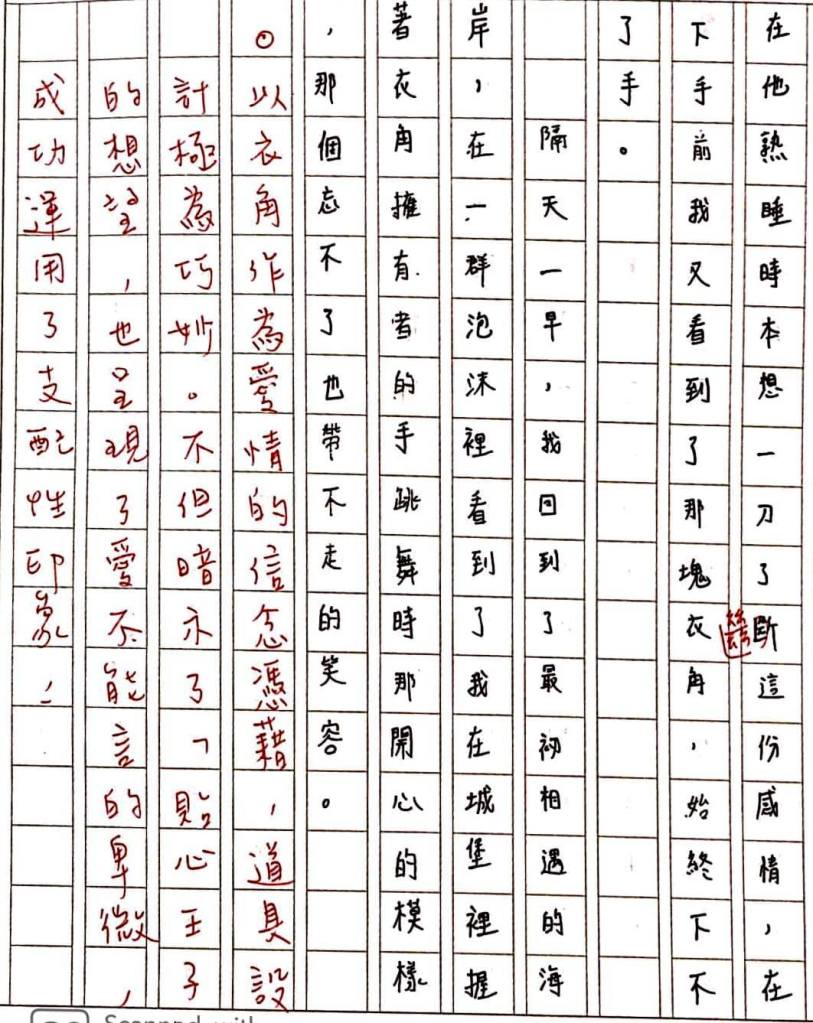 在他熟睡時本想一刀了斷這份感情，在
下手前我又看到了那塊衣角，始終下不
了手。
隔天一早，我回到了最初相遇的海
岸，在一群泡沫裡看到了我在城堡裡握
著衣角擁有者的手跳舞時那開心的模樣
，那個忘不了也帶不走的笑容。
。以衣角作為愛情的信念憑藉，道具設
計極為巧妙。不但暗示了「貽心王子
的想望，也呈現了愛不能言的卑微，
成功運用了支配性印象！
Scanned with